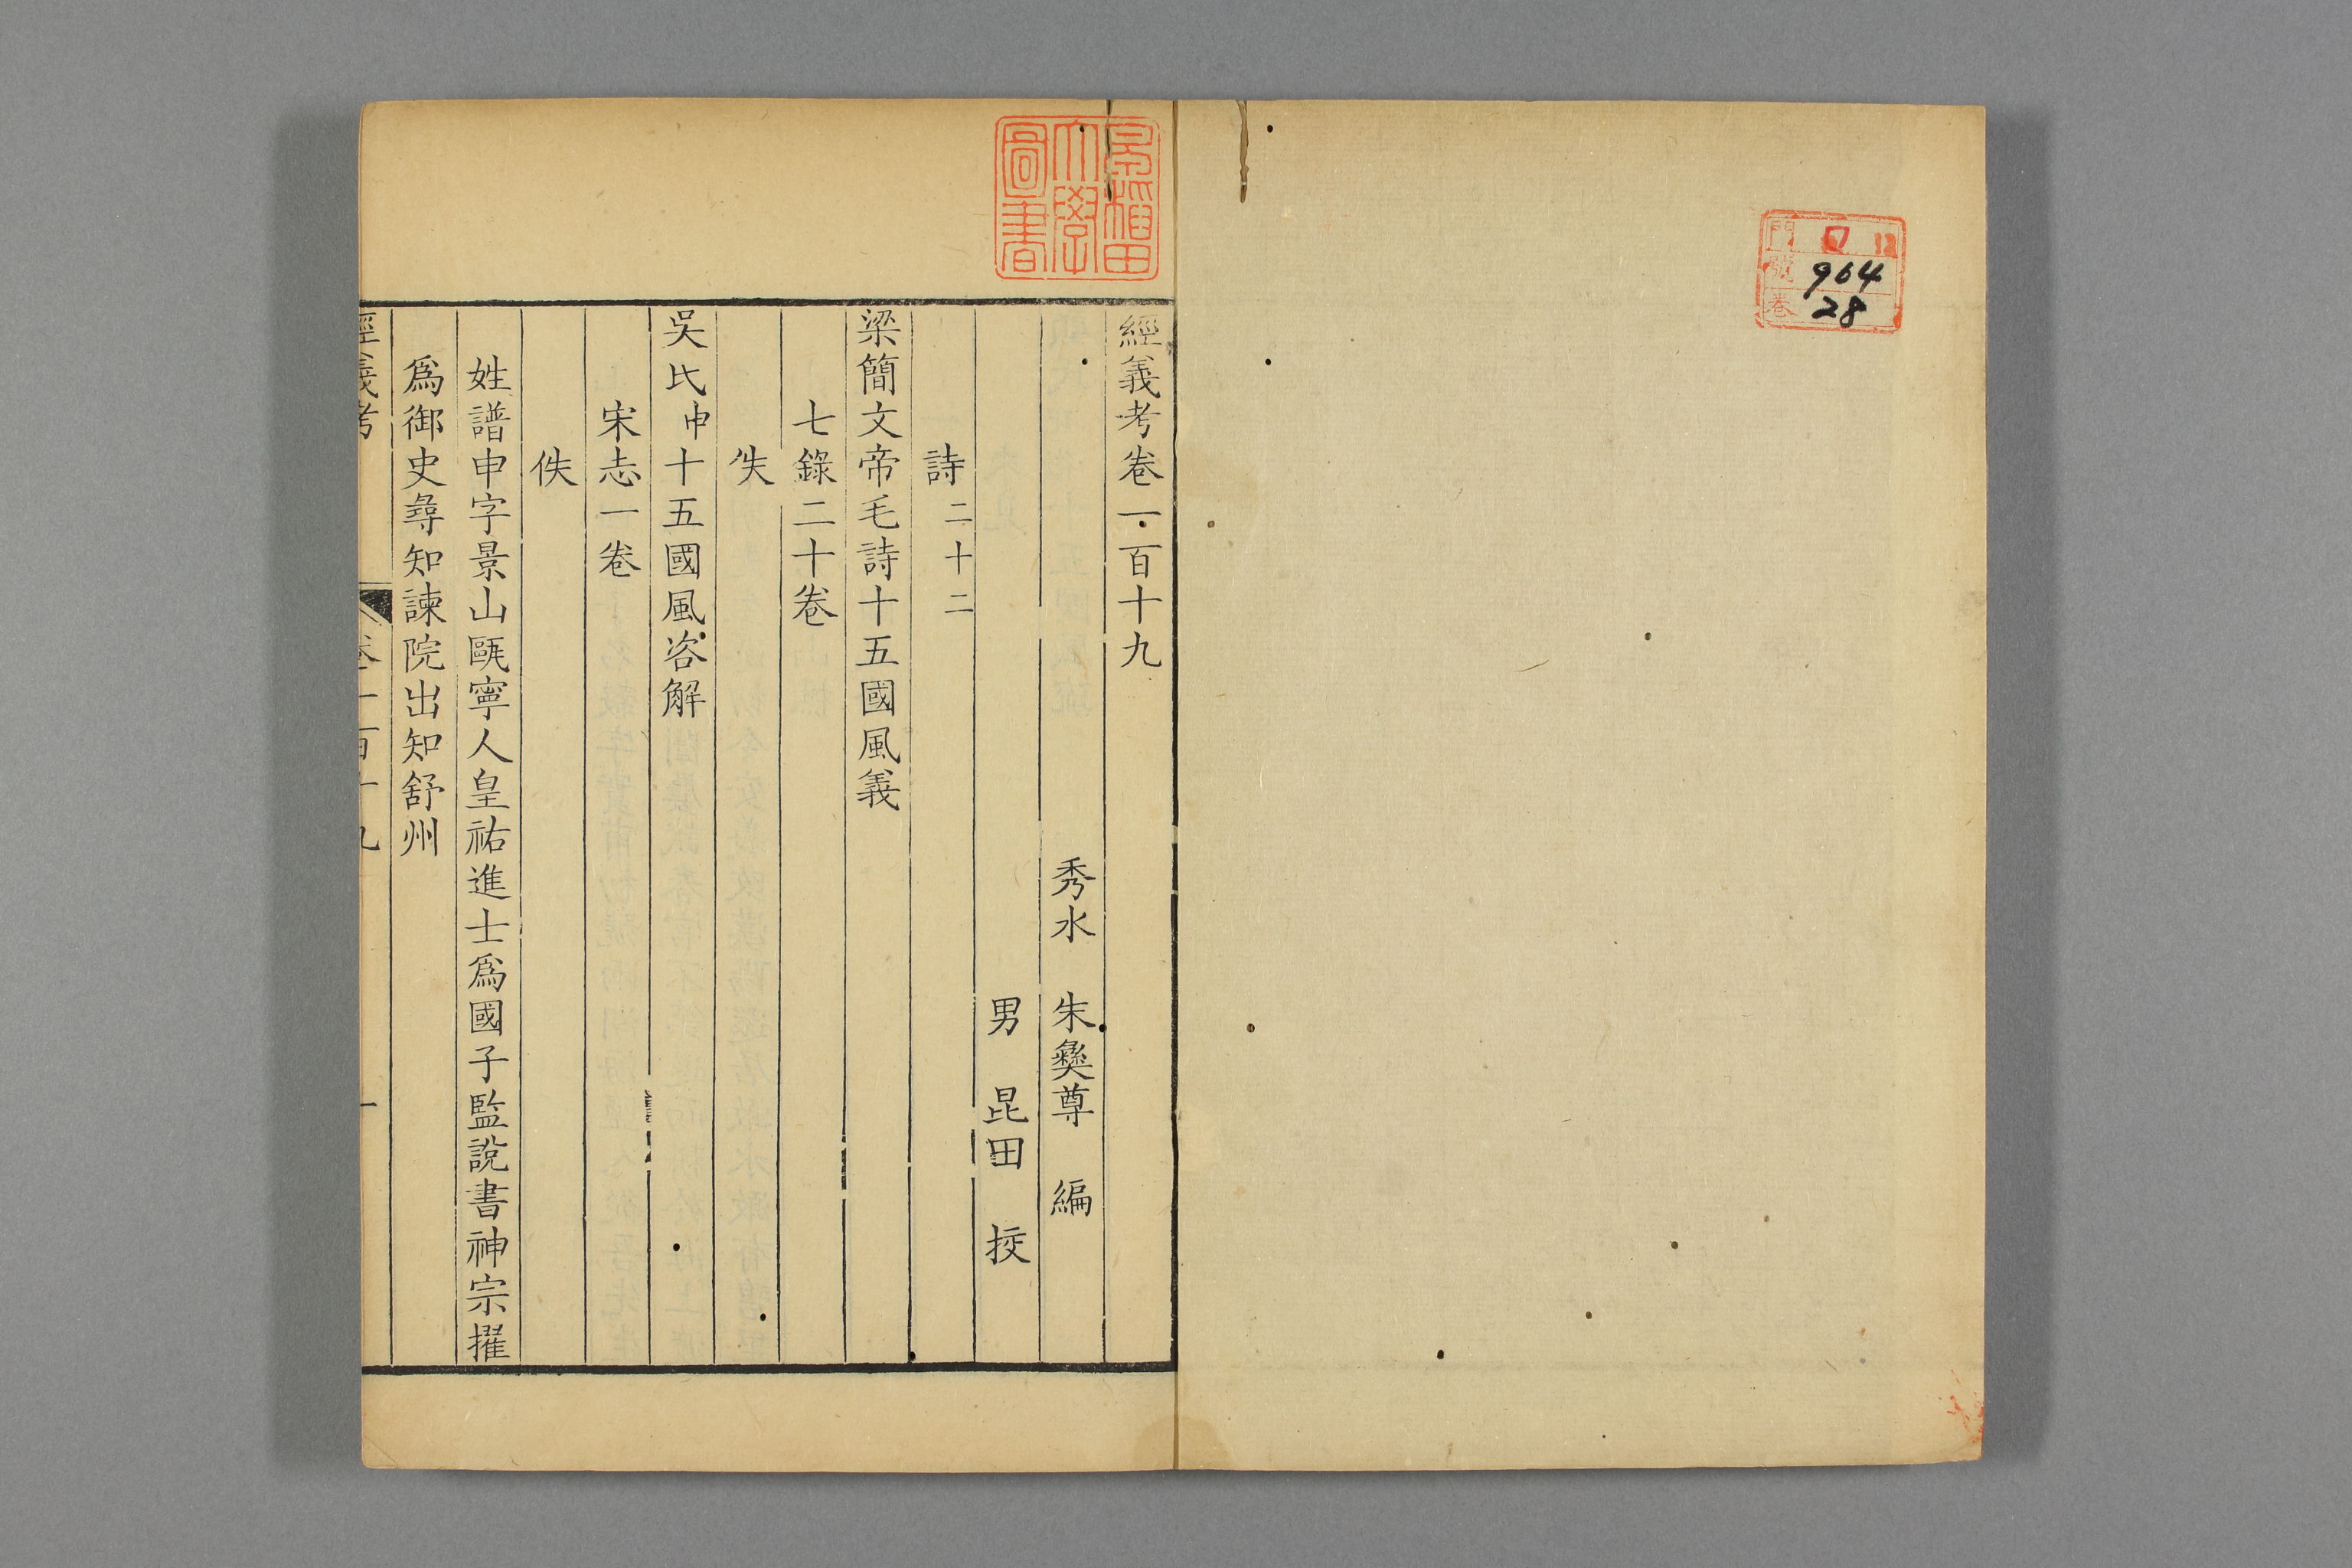 門 口 12
號 964
卷 28
早稻田大學圖書
經義考卷一百十九
秀水 朱彝尊 編
男 昆田 挍
詩 二十二
梁簡文帝毛詩十五國風義
七錄二十卷
失
吳氏申十五國風咨解
宋志一卷
佚
姓譜申字景山甌寧人皇祐進士爲國子監說書神宗擢
爲御史尋知諫院出知舒州
經義考 卷一百十九 一